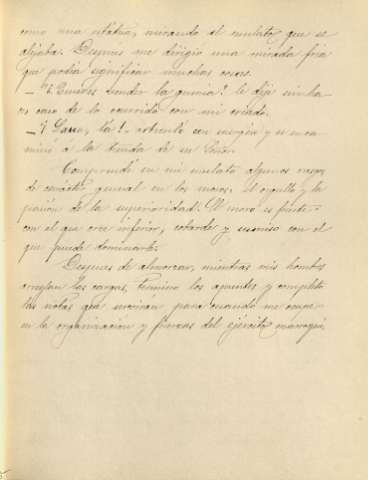 como una estatua, mirando al mulato que se
alejaba. Despues me dirigió una mirada fria
que podia significar muchas cosas.
— "¿Quieres vender la gumia? le dije sin ha-
cer caso de lo ocurrido con mi criado.
— ¡La, la!, articuló con energia y se enca-
minó á la tienda de su Señor.
Comprendi en mi mulato algunos rasgos
de caracter general en los moros: el orgullo y la
pasion de la superioridad. El moro es fuerte
con el que cree inferior, cobarde y sumiso con el
que puede dominarle.
Despues de almorzar, mientras mis hombres
arreglan las cargas, termino los apuntes y completo
las notas que servirán para cuando me ocupe
en la organizacion y fuerzas del ejército marroquí.